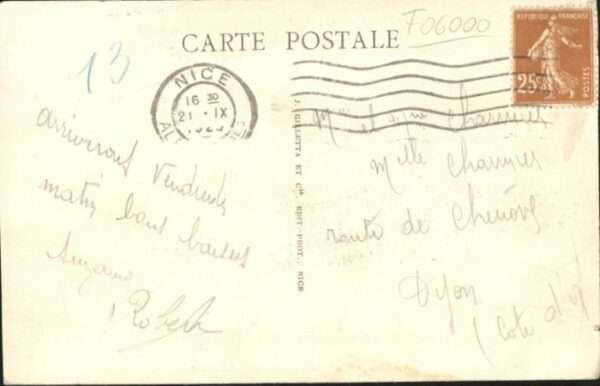 F06000
CARTE POSTALE
REPUBLIQUE FRANÇAISE
25c
POSTES
13
NICE
16 30
21 · IX
J. GILLETTA ET Cie, EDIT.-PHOT., NICE
arriverons Vendredi
matin bons baisers
Suzanne
Robert
Mr et Mme
Melle
route de Chenôve
Dijon
(Cote d'or